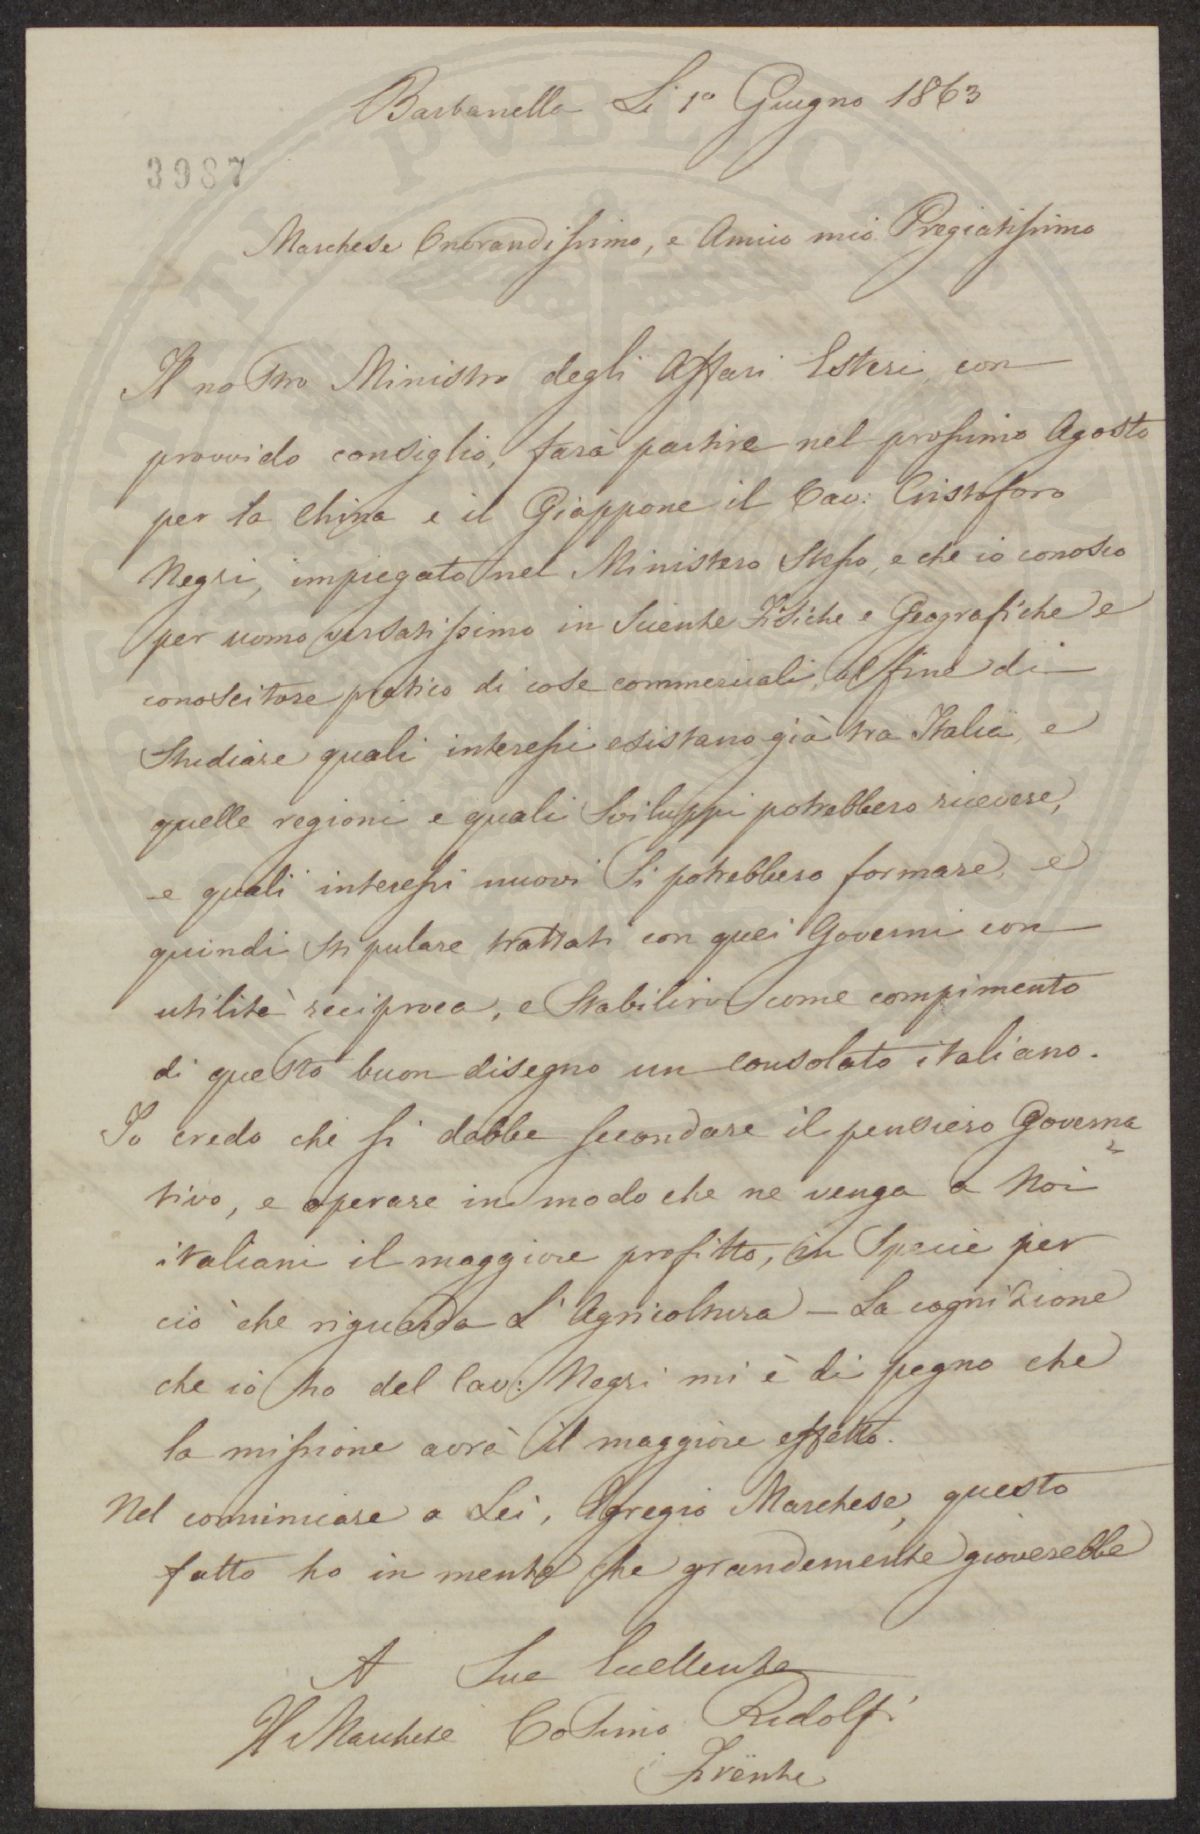 Barbanella Li 1º Giugno 1863
3987
Marchese Onorandissimo, e Amico mio Pregiatissimo
Il nostro Ministro degli Affari Esteri, con
provvido consiglio, farà partire nel prossimo Agosto
per la China e il Giappone il Cav: Cristoforo
Negri, impiegato nel Ministero Stesso, e che io conosco
per uomo versatissimo in Scienze Fisiche e Geografiche e
conoscitore pratico di cose commerciali, al fine di
Studiare quali interessi esistano già tra Italia, e
quelle regioni e quali Sviluppi potrebbero ricevere,
e quali interessi nuovi Si potrebbero formare, e
quindi stipulare trattati con quei Governi con
utilità reciproca, e Stabilirvi come compimento
di questo buon disegno un Consolato italiano.
Io credo che si debba secondare il pensiero Governa
tivo, e operare in modo che ne venga a Noi
italiani il maggiore profitto, in Specie per
ciò che riguarda L'Agricoltura — La cognizione
che io ho del Cav: Negri mi è di pegno che
la missione avrà il maggiore effetto.
Nel comunicare a Lei, Egregio Marchese, questo
fatto ho in mente che grandemente gioverebbe
A Sua Eccellenza
Il Marchese Cosimo Ridolfi
Firenze